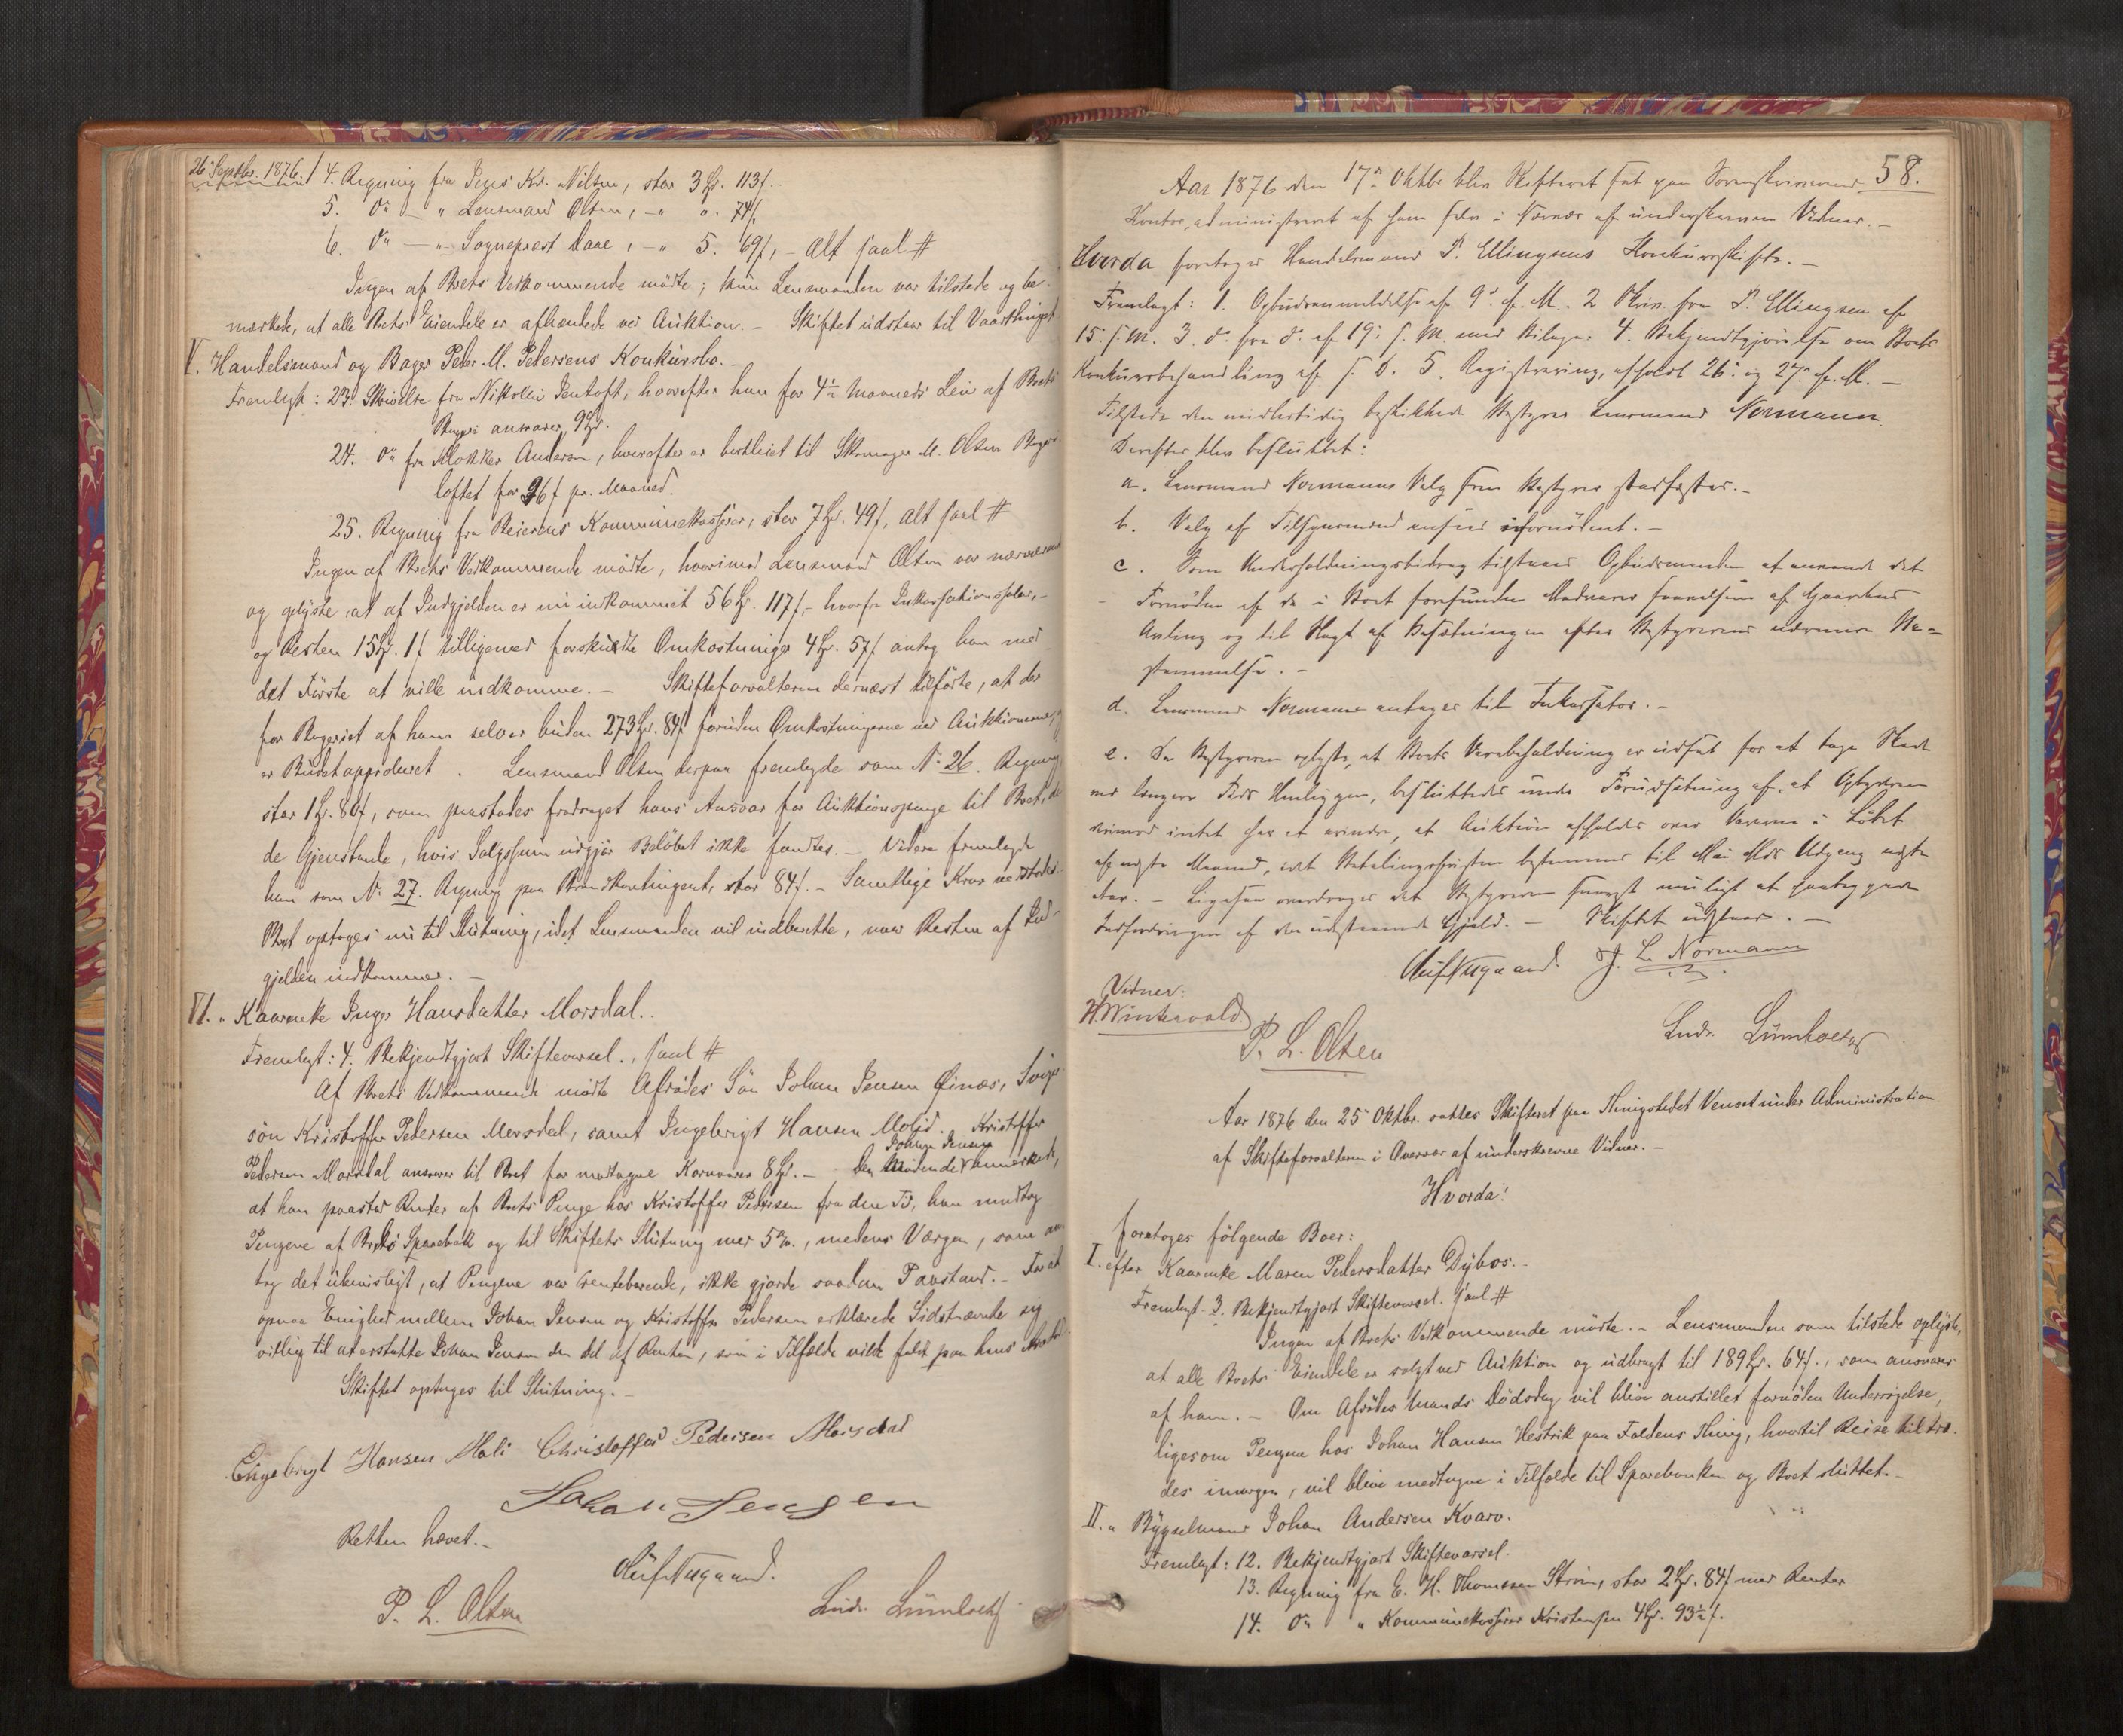 26 Septbr. 1876. 4. Regning fra Jens Kr. Nilsen, stor 3 Spd. 113 s.
5. do — " Lensmand Olsen, — " 0. 74 s,
6. do — " Sogneprest Daae, — " 5. 69 s, — Alt saal. #
Ingen af Boets Vedkommende mødte; kun Lensmanden var tilstede og be-
mærkede, at alle Boets Eiendele er afhændede ved Auktion. — Skiftet udstaar til Vaarthinget
V. Handelsmand og Bager Peder M. Pedersens Konkursbo.
Fremlagt: 23. Skrivelse fra Nikolai Jentoft, hvorefter han for 4½ Maaneds Leie af Boets
Bageri ansvarer 9 Spd.
24. do fra Klokker Andersen, hvorefter er bortleiet til Skomager M. Olsen Bager-
loftet for 96 s pr. Maaned.
25. Regning fra Beierens Kommunekasserer, stor 7 Spd. 49 s, alt saal. #
Ingen af Boets Vedkommende mødte, hvorimod Lensmand Olsen var nærværende
og oplyste, at af Indgjelden er nu indkommet 56 Spd. 117 s, — hvorfra Inkassationssalær, —
og Resten 15 Spd. 1 s tilligemed forskudte Omkostninger 4 Spd. 57 s antog han med
det Første at ville indkomme. — Skifteforvalteren dernæst tilførte, at der
for Bageriet af ham selv er buden 273 Spd. 84 s foruden Omkostningerne ved Auktionerne,
er Budet approberet. Lensmand Olsen derpaa fremlagde som No 26. Regning
stor 1 Spd. 80 s, som paastodes fradraget hans Ansvar for Auktionspenge til Boet, da
de Gjenstande, hvis Salgssum udgjør Beløbet ikke fandtes. — Videre fremlagde
han som No 27. Regning paa Brandkontingent, stor 84 s. — Samtlige Krav
Boet optages nu til Slutning, idet Lensmanden vil indberette, naar Resten af Ind-
gjelden indkommer. —
VI. " Kaarenke Inger Hansdatter Morsdal.
Fremlagt: 4. Bekjendtgjort Skiftevarsel., saal. #
Af Boets Vedkommende mødte Afdødes Søn Johan Jensen Øinæs, Sviger-
søn Kristoffer Pedersen Morsdal, samt Ingebrigt Hansen Molid. Kristoffer
Pedersen Morsdal ansvarer til Boet for modtagne Kornvarer 8 Spd. — Den Mødende Johan Jensen bemærkede,
at han paastod Renter af Boets Penge hos Kristoffer Pedersen fra den Tid, han modtog
Pengene af Bodø Sparebank og til Skiftets Slutning med 5 %., medens Værgen, som an-
tog det ubevisligt, at Pengene var rentebærende, ikke gjorde saadan Paastand. — For at
opnaa Enighed mellem Johan Jensen og Kristoffer Pedersen erklærede Sidstnævnte sig
villig til at erstatte Johan Jensen den del af Renten, som i Tilfælde vilde faldt paa hans
Skiftet optages til Slutning. —
Engebrigt Hansen Moli Christoffer Pedersen Morsdal
Johan Jensen
Retten hævet. —
P. L. Olsen
Ludv. Lumholtz
58.
Aar 1876 den 17de Oktbr blev Skifteret sat paa Sorenskriverens
Kontor, administreret af ham selv i Nærvær af underskrevne Vidner. —
Hvorda foretoges Handelsmand P. Ellingsens Konkursskifte. —
Fremlagt: 1. Opbudsanmeldelse af 9de f. M. 2 Skriv. fra P. Ellingsen af
15. f. M. 3. do fra do af 19. f. M. med Bilage. 4. Bekjendtgjørelse om Boets
Konkursbehandling af s. D. 5. Registrering, afholdt 26. og 27. f. M. —
Tilstede den midlertidig beskikkede Bestyrer Lensmand Normann.
Derefter blev besluttet:
a. Lensmand Normanns Valg som Bestyrer stadfæstes. —
b. Valg af Tilsynsmand ansees ufornødent. —
c. Som Underholdningsbidrag tilstaaes Opbudsmanden at anvende det
Fornødne af de i Boet forefundne Madvarer foruden af Gaardens
Avling og til Slagt af Besætningen efter Bestyrerens nærmere Be-
stemmelse. —
d. Lensmand Normann antages til Inkassator. —
e. Da Bestyreren oplyste, at Boets Varebeholdning er udsat for at tage Skade
ved længere Tids Henliggen, besluttedes under Forudsætning af, at Opbyderen
derimod intet har at erindre, at Auktion afholdes over Varerne i Løbet
af næste Maaned, idet Betalingsfristen bestemmes til Mai Mds Udgang næste
Aar. — Ligesaa overdrages det Bestyreren snarest muligt at paabegynde
Indfordringen af den udestaaende Gjæld. — Skiftet udstaar. —
J. L. Normann
Vidner:
H Wintervold
P. L. Olsen
Ludv. Lumholtz
Aar 1876 den 25de Oktbr. sattes Skifteret paa Thingstedet Venset under Administration
af Skifteforvalteren i Overvær af underskrevne Vidner. —
Hvorda!
foretoges følgende Boer:
I. efter Kaarenke Maren Pedersdatter Dybos. —
Fremlagt. 3. Bekjendtgjort Skiftevarsel. saal. #
Ingen af Boets Vedkommende mødte. — Lensmanden som tilstede oplyste,
at alle Boets Eiendele er solgt ved Auktion og udbragt til 189 Spd. 64 s., som ansvares
af ham. — Om Afdødes Mands Dødsdag vil blive anstillet fornøden Undersøgelse,
ligesom Pengene hos Johan Hansen Hestvik paa Foldens Thing, hvortil Reise tiltræ-
des imorgen, vil blive modtagne i Tilfælde til Sparebanken og Boet sluttet. —
II. " Bygselmand Johan Andersen Kvarv.
Fremlagt: 12. Bekjendtgjort Skiftevarsel.
13. Regning fra E. H. Thomsen Strøm, stor 2 Spd. 84 s med Renter
14. do " Kommunekasserer Kristensen 4 Spd. 93½ s.